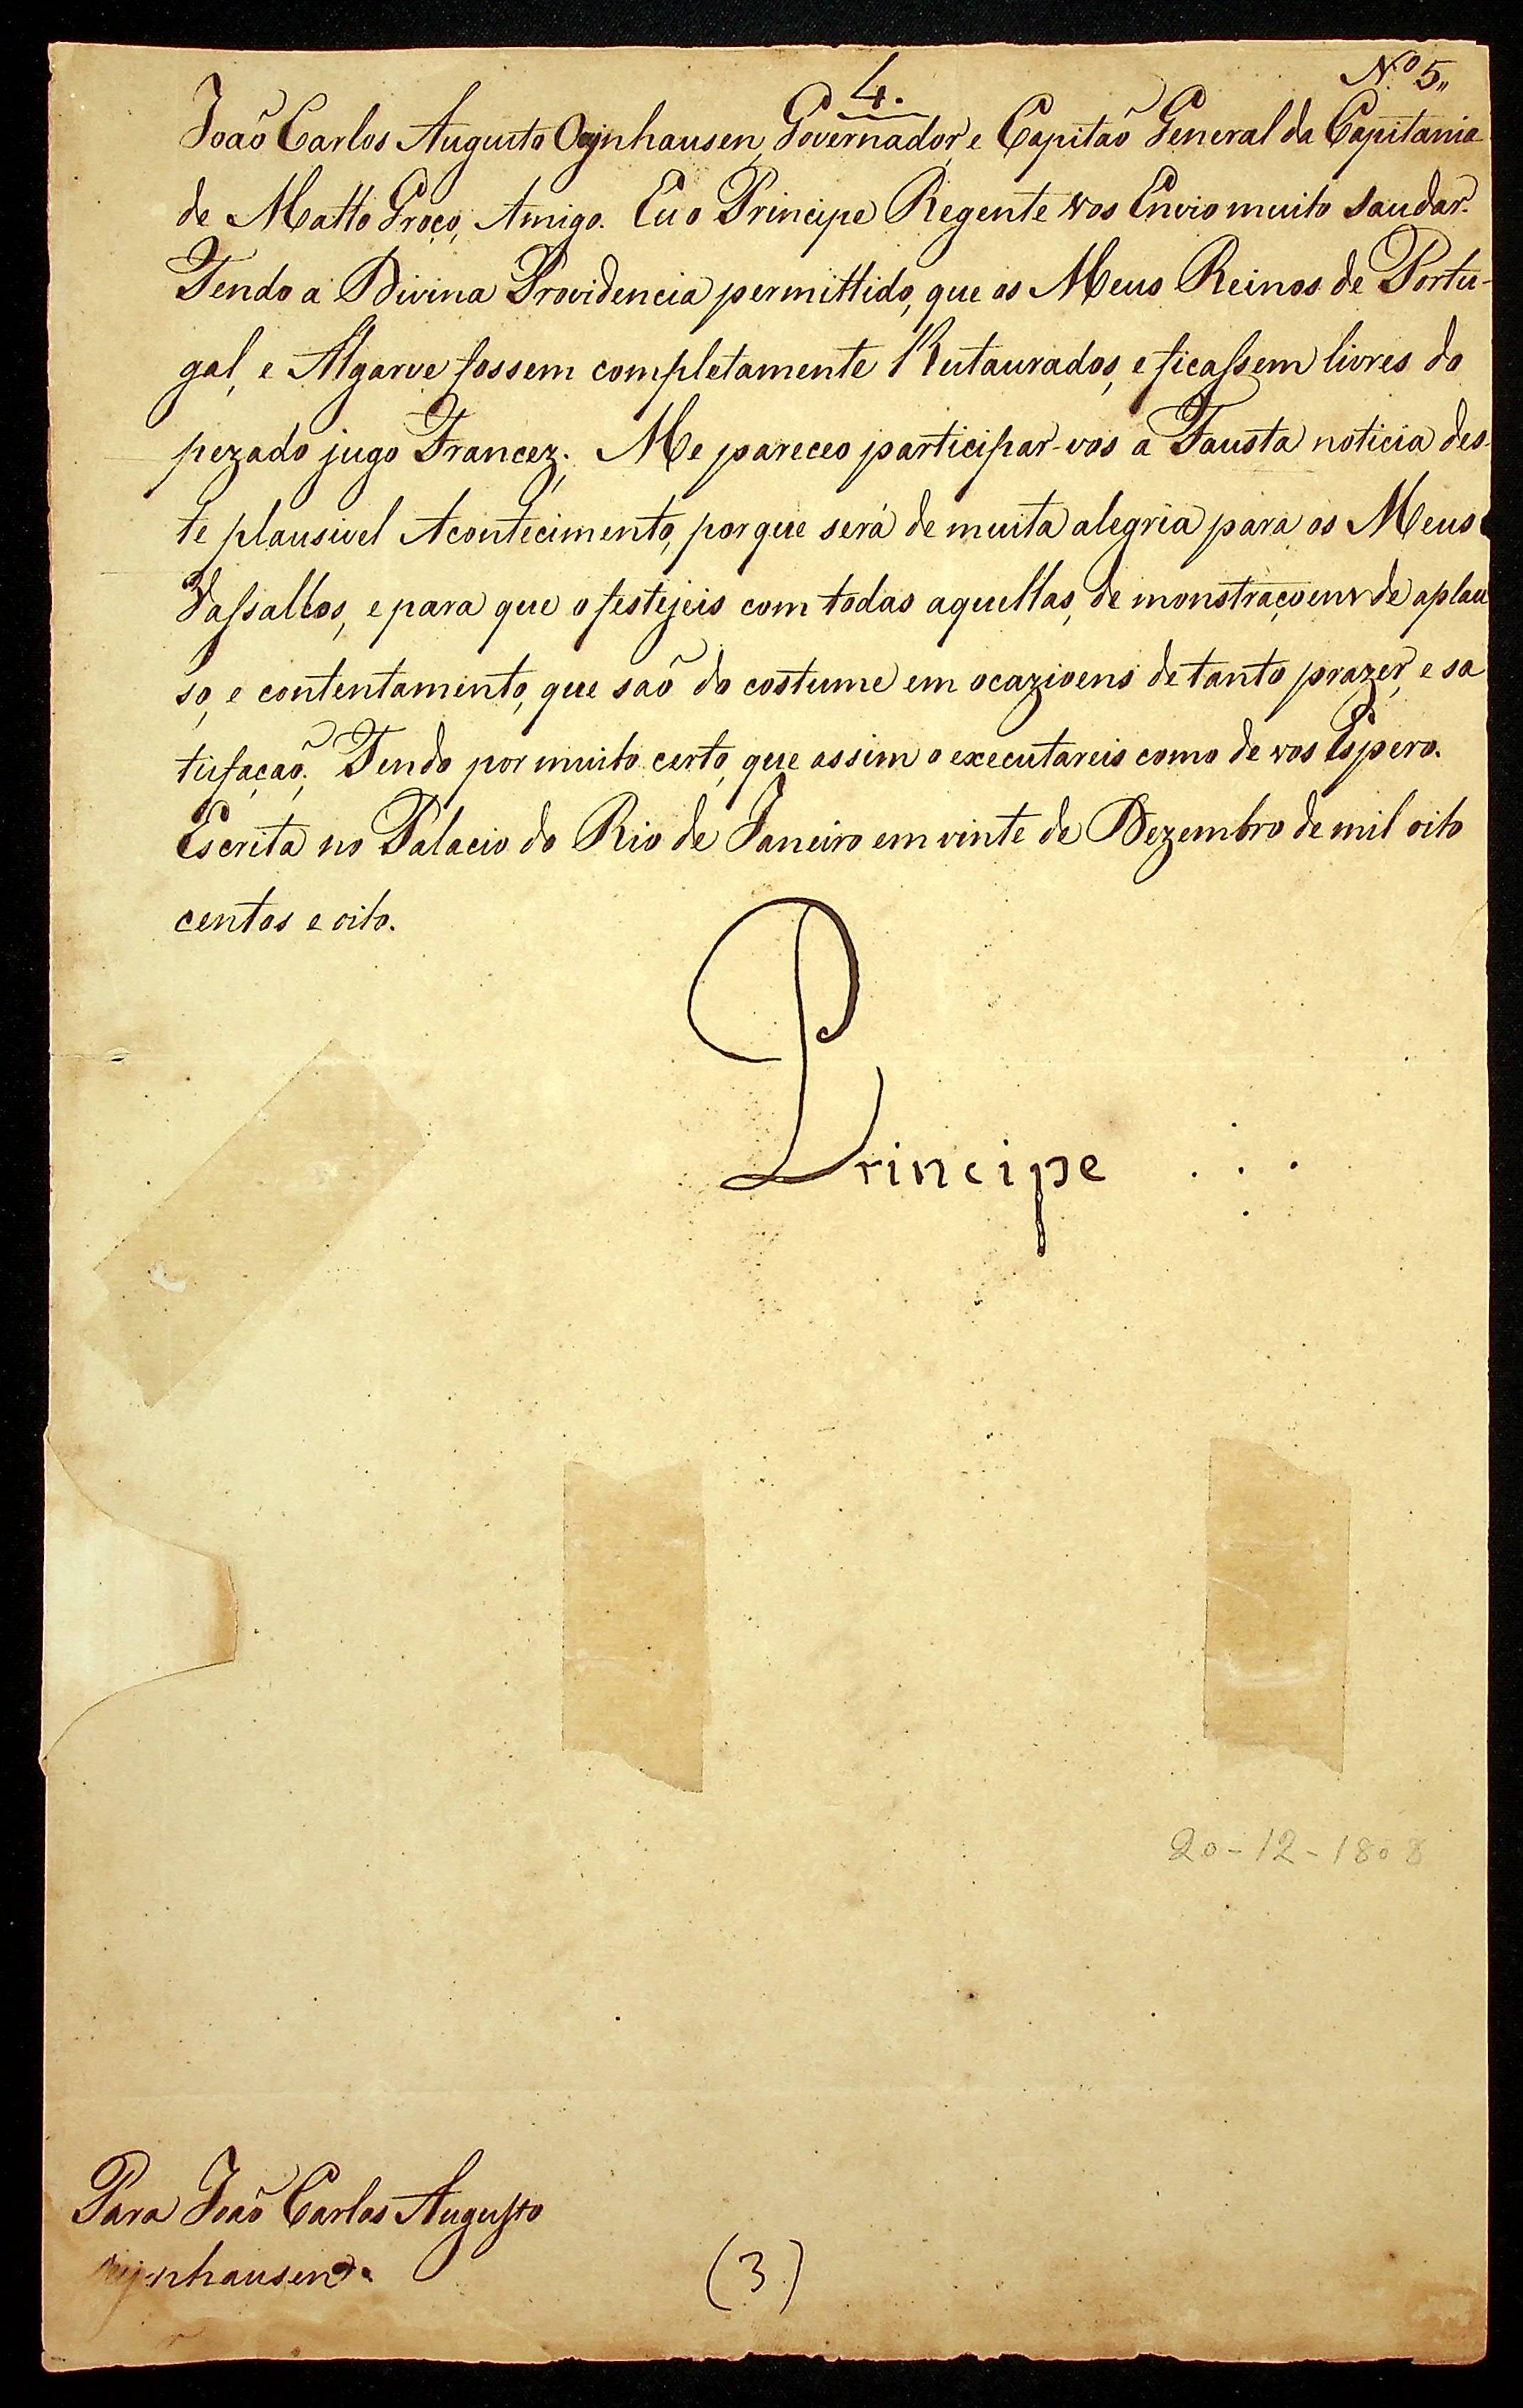 4.
N.º 5,,
João Carlos Augusto Oeynhausen, Governador, e Capitaõ General da Capitania
de Matto Groço, Amigo. Eu o Principe Regente vos Envio muito Saudar.
Tendo a Divina Providencia permittido, que os Meus Reinos de Portu-
gal, e Algarve fossem completamente Restaurados, e ficassem livres do
pezado jugo Francez; Me pareceo participar-vos a Fausta noticia des-
te plausivel Acontecimento, por que será de muita alegria para os Meus
Vassallos, e para que o festejeis com todas aquellas, de monstraçoens de aplau
so, e contentamento, que saõ do costume em ocazioens de tanto prazer, e sa
tisfaçaõ; Tendo por muito certo, que assim o executareis como de vos Espero.
Escrita no Palacio do Rio de Janeiro em vinte de Dezembro de mil oito
centos e oito.
Principe
20-12-1808
Para Joaõ Carlos Augusto
Oeynhausen.
(3)